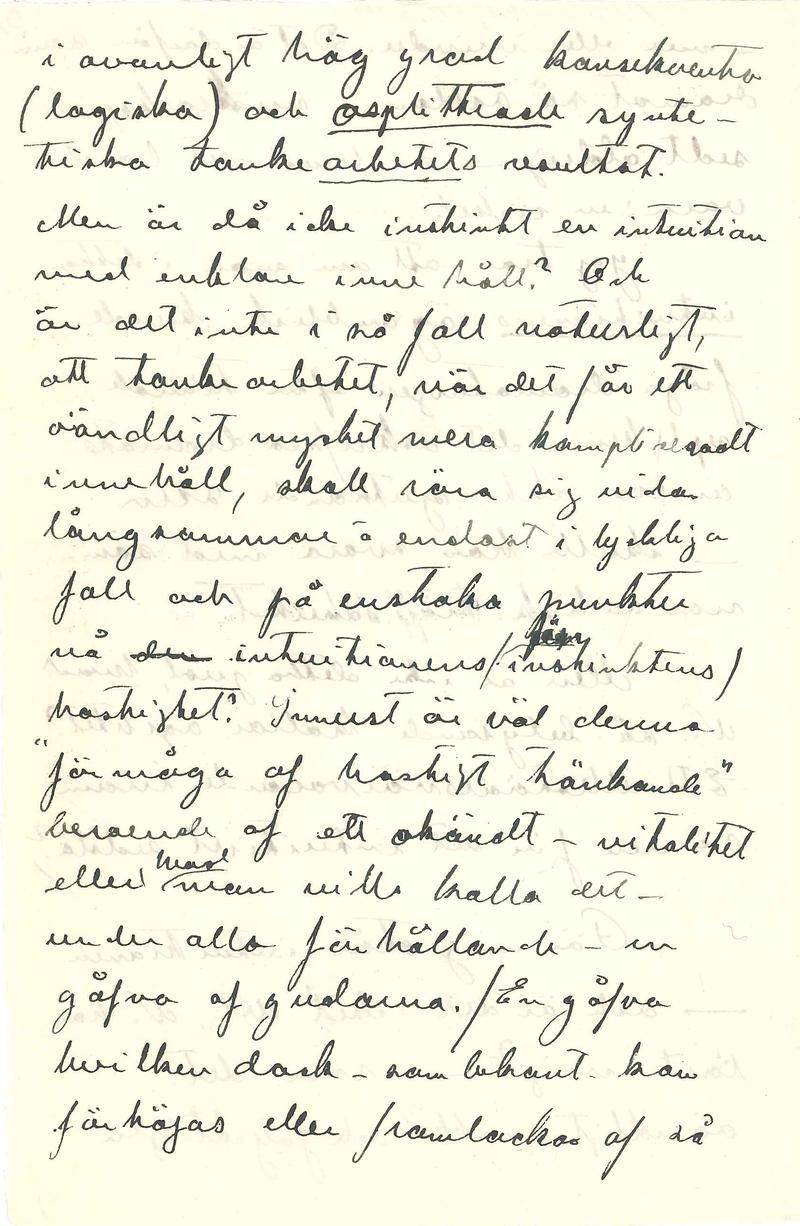 i ovanligt hög grad konsekventa
(logiska) och osplittrade synte-
tiska tankearbetets resultat.
Men är då icke instinkt en intuition
med enklare innehåll? Och
är det inte i så fall naturligt,
att tankearbetet, när det får ett
oändligt mycket mera kompliceradt
innehåll, skall röra sig vida
långsammare o endast i lyckliga
fall och på enstaka punkter
nå den intuitionens (instinktens)
hastighet? Innerst är väl denna
"förmåga af hastigt tänkande"
beroende af ett okändt – vitalitet
eller hvad man ville kalla det –
under alla förhållande – en
gåfva af gudarna. / En gåfva
hvilken dock – som bekant – kan
förhöjas eller framlockas af så